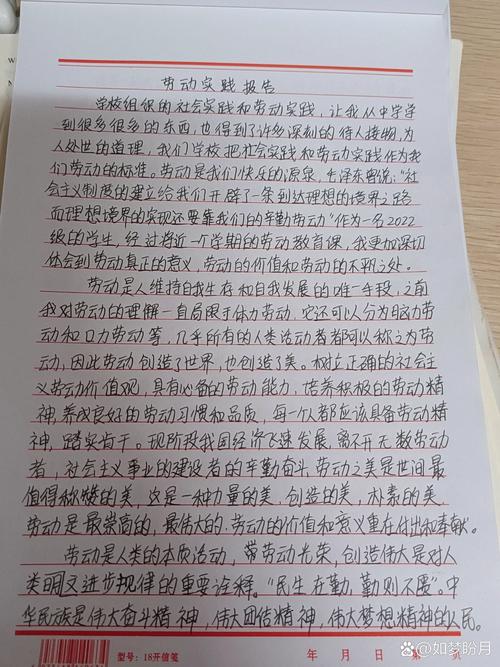 劳动实践报告
学校组织的社会实践和劳动实践，让我从中学学
到很多很多的东西，也得到了许多深刻的待人接物，为
人处世的道理，我们学校把社会实践和劳动实践作为我
们劳动的标准。劳动是我们快乐的源泉，毛泽东曾说："社
会主义制度的建立给我们开辟了一条到达理想的境界之路
而理想境界的实现还要靠我们的辛勤劳动"作为一名2022
级的学生，经过将近一个学期的劳动教育课，我更加深切
体会到劳动真正的意义，劳动的价值和劳动的不凡之处。
劳动是人维持自我生存和自我发展的唯一手段，之前
我对劳动的理解一直局限于体力劳动。它还可以分为脑力劳
动和口力劳动等，几乎所有的人类活动者都可以称之为劳
动，因此劳动创造了世界，也创造了美。树立正确的社会主
义劳动价值观，具有必备的劳动能力，培养积极的劳动精
神，养成良好的劳动习惯和品质，每一个人都应该具备劳动精
神，踏实肯干。现阶段我国经济飞速发展，离不开无数劳动
者，社会主义事业的建设者的辛勤奋斗，劳动之美是世间最
值得称赞的美，这是一种力量的美，创造的美，朴素的美
劳动是最崇高的，最伟大的，劳动的价值和意义重在付出和奉献。
劳动是人类的本质活动，劳动光荣，创造伟大是对人
类明文进步规律的重要诠释。"民生在勤，勤则不匮"。中
华民族是伟大奋斗精神，伟大团结精神，伟大梦想精神的人民。
型号：18开信笺
年 月 日 第 页
@如梦盼月